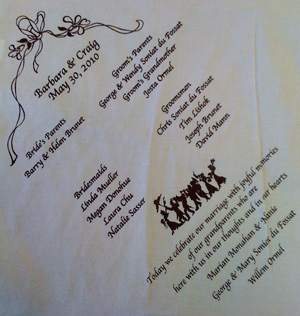 Barbara & Craig
May 30, 2010
Groom's Parents
George & Wendy Soniat du Fossat
Groom's Grandmother
Josta Ormel
Bride's Parents
Barry & Helen Brunet
Groomsmen
Chris Soniat du Fossat
Tim Lishok
Joseph Brunet
David Mann
Bridesmaids
Linda Mueller
Megan Donohue
Laura Chu
Natalie Sasser
Today we celebrate our marriage with joyful memories
of our grandparents who are
here with us in our thoughts and in our hearts
Marian Monahan & Name
George & Mary Soniat du Fossat
Willem Ormel